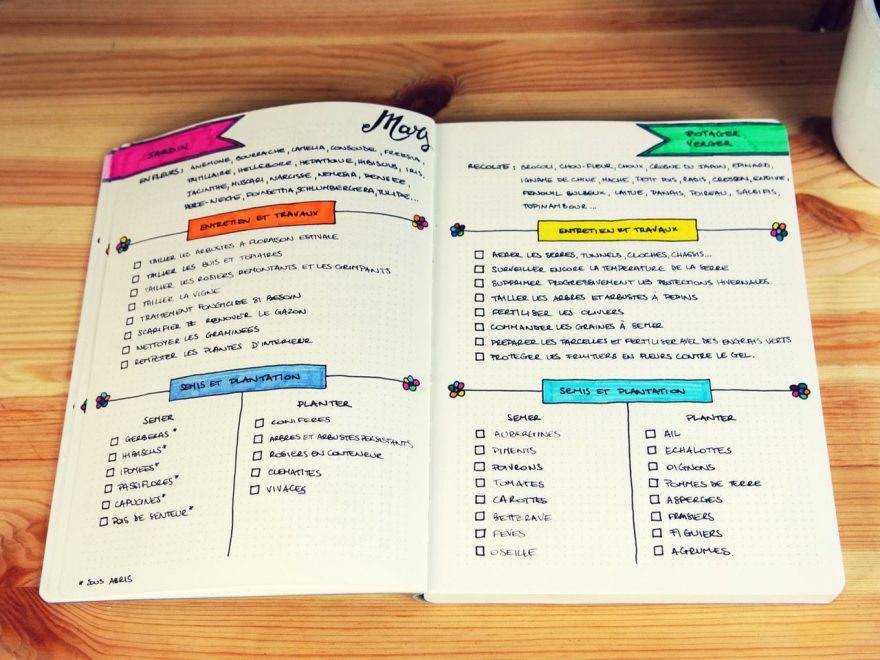 Mars
JARDIN
EN FLEURS : ANEMONE, BOURRACHE, CAMELIA, CONSOUDE, FREESIA,
FRITILLAIRE, HELLEBORE, HEPATIQUE, HIBISCUS, IRIS,
JACINTHE, MUSCARI, NARCISSE, NEMESIA, PENSEE,
PERCE-NEIGE, POINSETTIA, SCHLUMBERGERA, TULIPE...
ENTRETIEN ET TRAVAUX
TAILLER LES ARBUSTES A FLORAISON ESTIVALE
TAILLER LES BUIS ET TOPIAIRES
TAILLER LES ROSIERS REMONTANTS ET LES GRIMPANTS
TAILLER LA VIGNE
TRAITEMENT FONGICIDE SI BESOIN
SCARIFIER RENOVER LE GAZON
NETTOYER LES GRAMINEES
REMPOTER LES PLANTES D'INTERIEUR
SEMIS ET PLANTATION
SEMER
GERBERAS*
HIBISCUS*
IPOMEES*
PASSIFLORES*
CAPUCINES*
POIS DE SENTEUR*
PLANTER
CONIFERES
ARBRES ET ARBUSTES PERSISTANTS
ROSIERS EN CONTENEUR
CLEMATITES
VIVACES
* SOUS ABRIS
POTAGER
VERGER
RECOLTE : BROCOLI, CHOU-FLEUR, CHOUX, CROSNE DU JAPON, EPINARD,
IGNAME DE CHINE, MACHE, PETIT POIS, RADIS, CRESSON, ENDIVE,
FENOUIL BULBEUX, LAITUE, PANAIS, POIREAU, SALSIFIS,
TOPINAMBOUR...
ENTRETIEN ET TRAVAUX
AERER LES SERRES, TUNNELS, CLOCHES, CHASSIS...
SURVEILLER ENCORE LA TEMPERATURE DE LA TERRE
SUPPRIMER PROGRESSIVEMENT LES PROTECTIONS HIVERNALES.
TAILLER LES ARBRES ET ARBUSTES À PEPINS
FERTILISER LES OLIVIERS
COMMANDER LES GRAINES À SEMER
PREPARER LES PARCELLES ET FERTILISER AVEC DES ENGRAIS VERTS
PROTEGER LES FRUITIERS EN FLEURS CONTRE LE GEL.
SEMIS ET PLANTATION
SEMER
AUBERGINES
PIMENTS
POIVRONS
TOMATES
CAROTTES
BETTERAVE
FEVES
OSEILLE
PLANTER
AIL
ECHALOTTES
OIGNONS
POMMES DE TERRE
ASPERGES
FRAISIERS
FIGUIERS
AGRUMES.